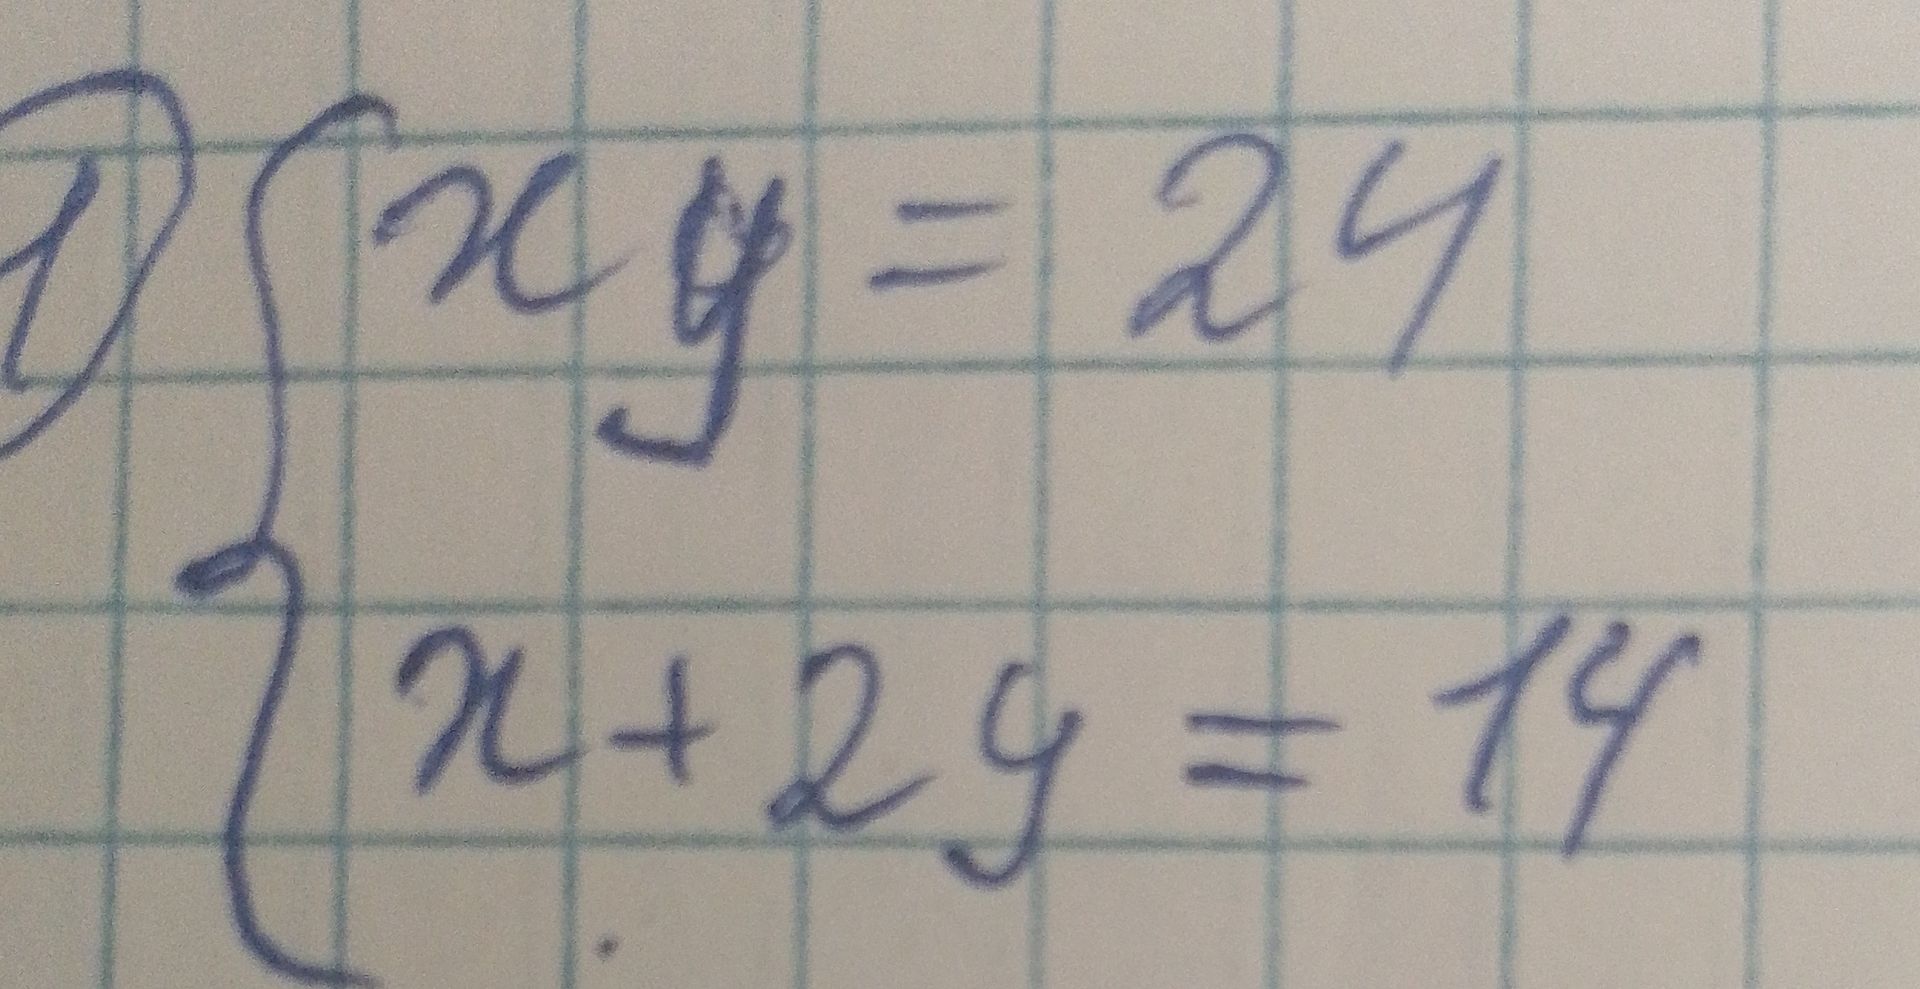 1) { xy = 24
x + 2y = 14